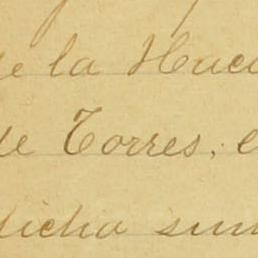 de la Hac
de Torres, e
dicha sum